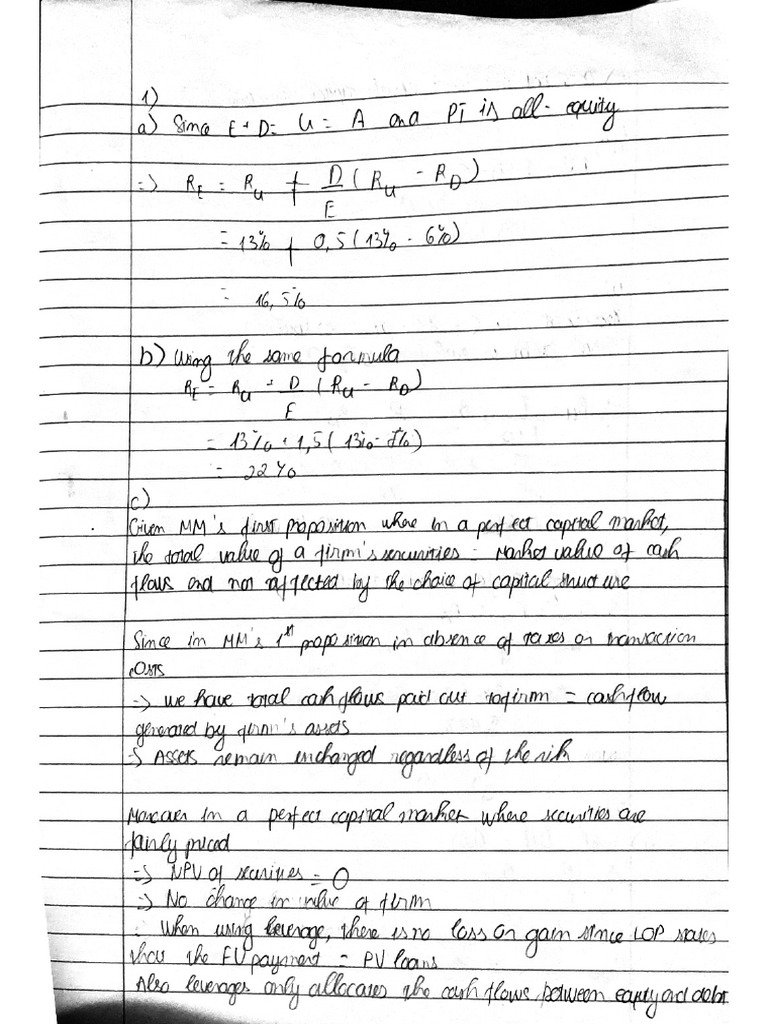 1)
a) Since E + D = U = A and PT is all-equity
=> R_E = R_U + D/E (R_U - R_D)
= 13% + 0,5 (13% - 6%)
= 16,5%
b) Using the same formula
R_E = R_U + D/E (R_U - R_D)
= 13% + 1,5 (13% - 7%)
= 22%
c)
Given MM's first proposition where in a perfect capital market,
the total value of a firm's securities = Market value of cash
flows and not affected by the choice of capital structure
Since in MM's 1st proposition in absence of taxes or transaction
costs
-> we have total cash flows paid out to firm = cash flow
generated by firm's assets
-> Assets remain unchanged regardless of the risk
in a perfect capital market where securities are
fairly priced
=> NPV of securities = 0
=> No change in value of firm
When using leverage, there is no loss or gain since LOP states
that the FV payment = PV loans
Also leverages only allocates the cash flows between equity and debt